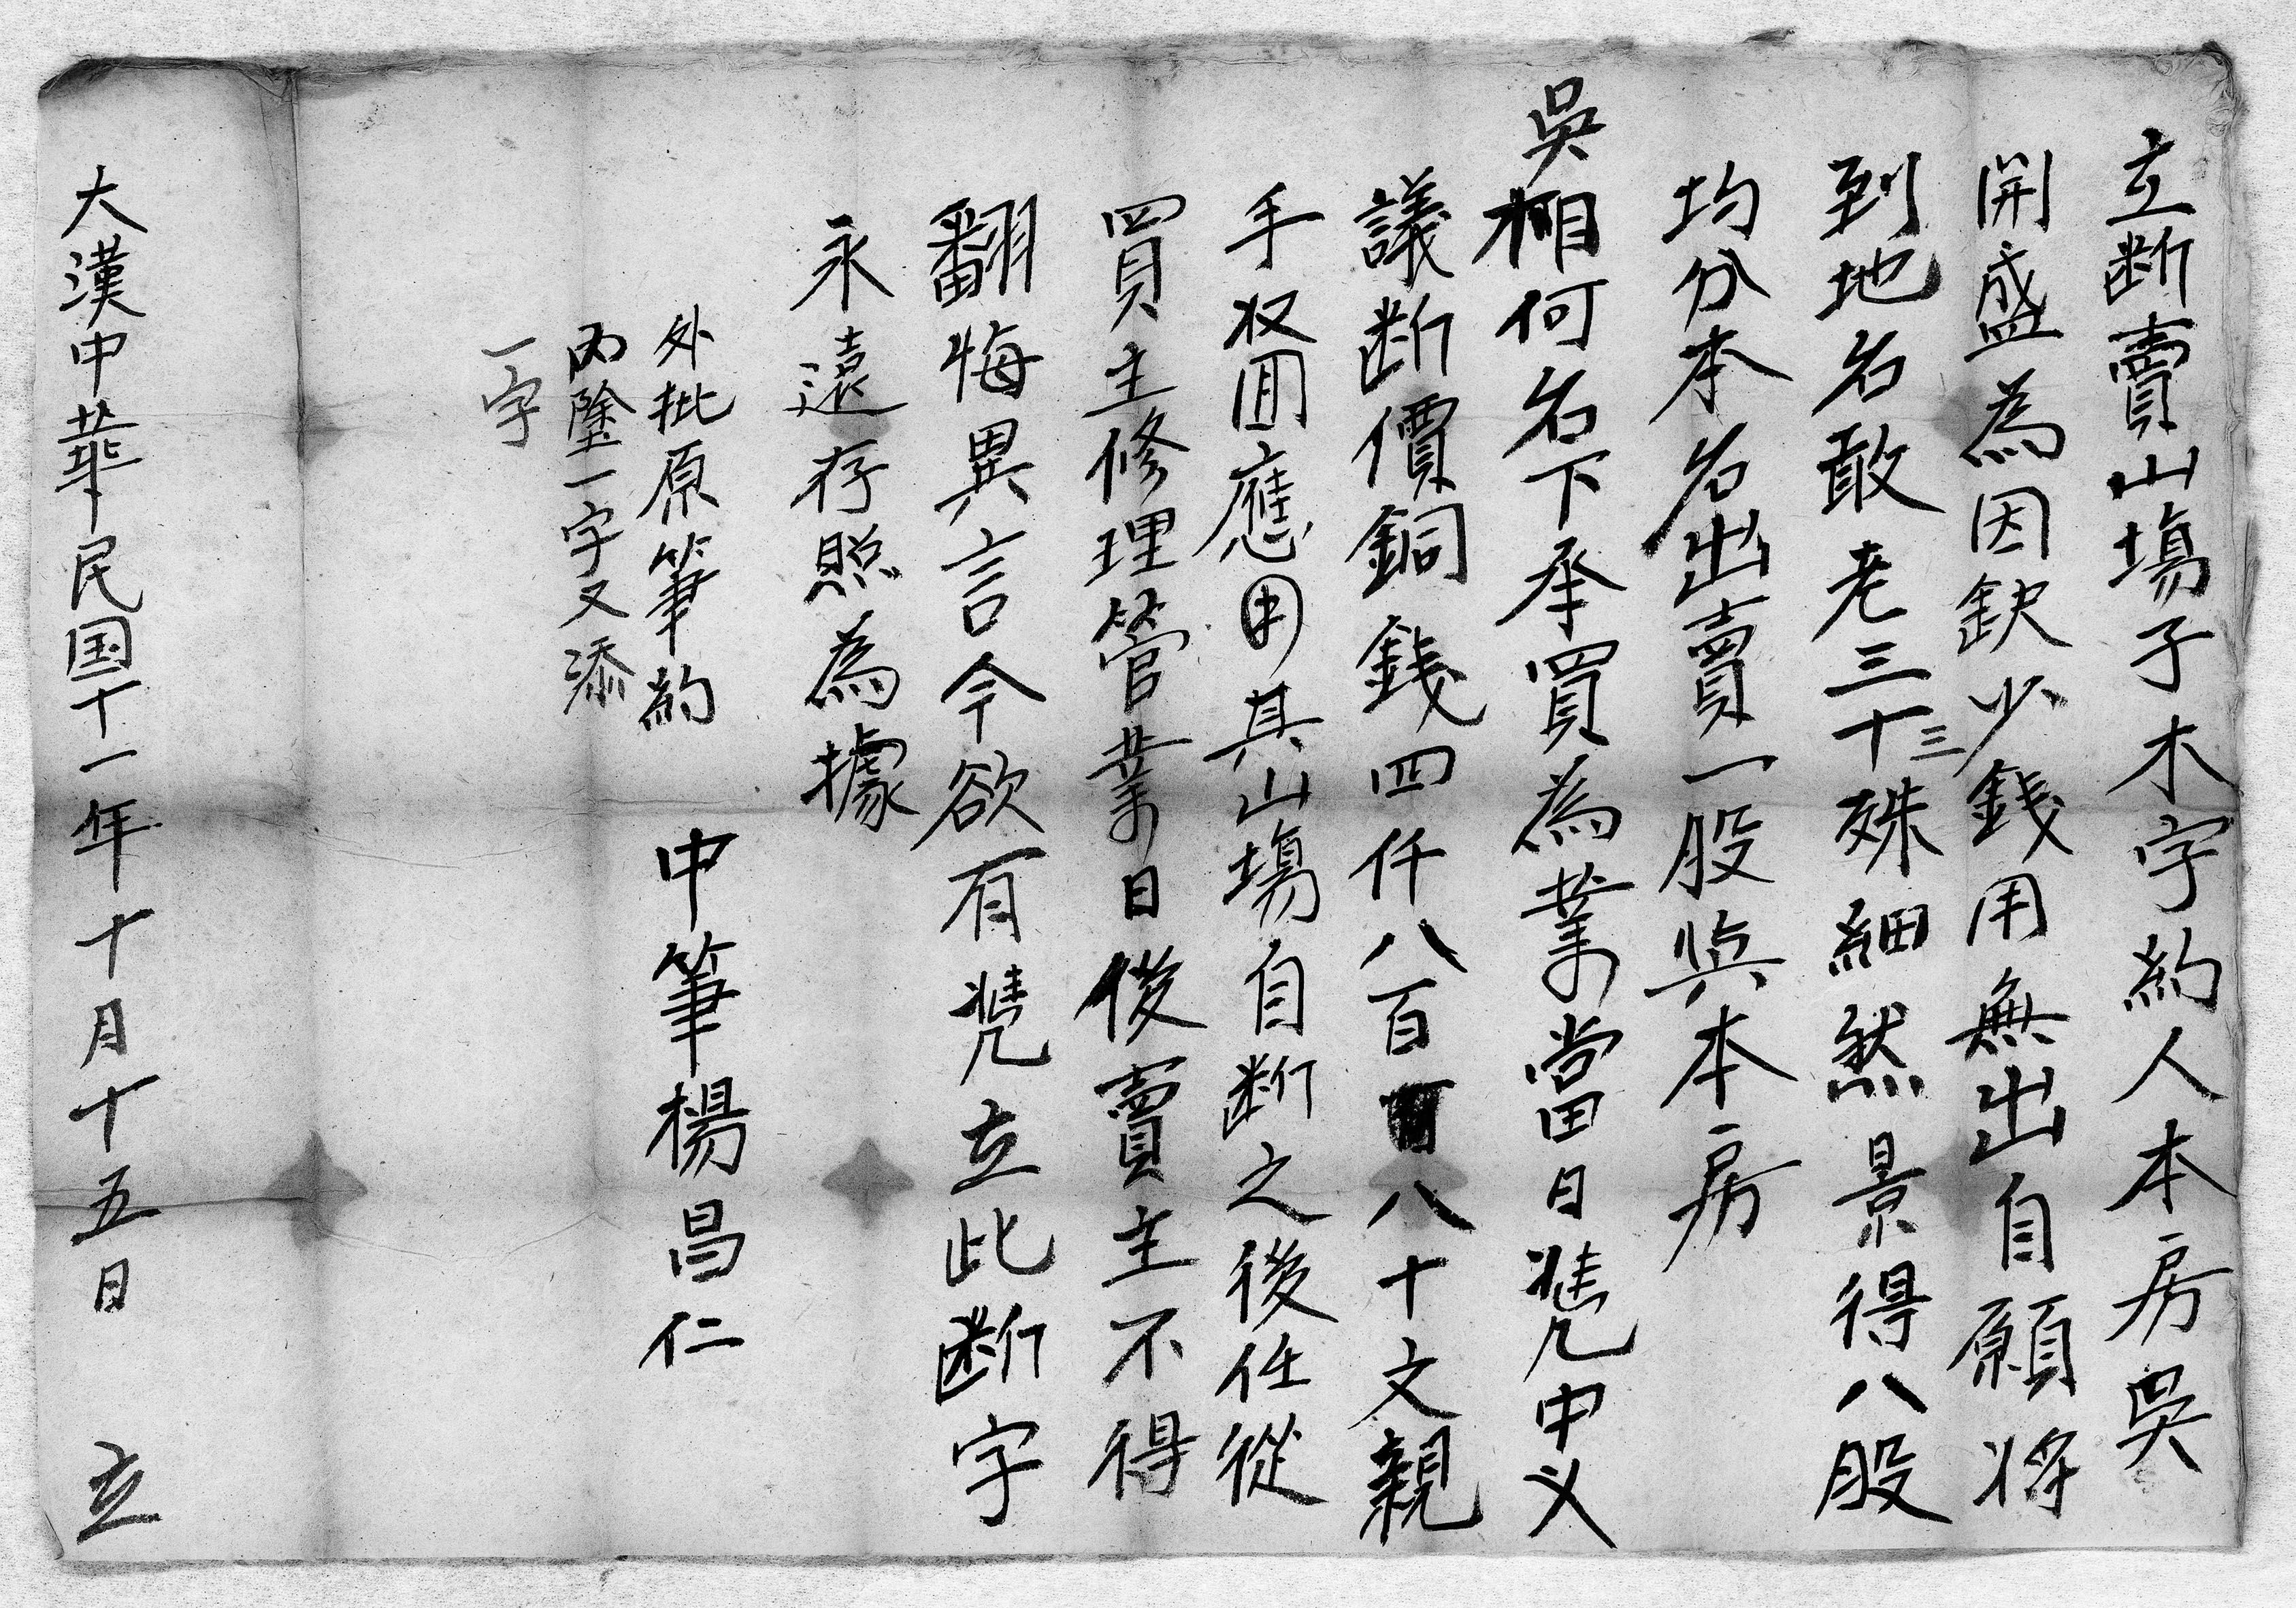 立断賣山塲子木字約人本房吳
開盛為因鈌少錢用無出自願将
到地名敢老三十三殊細然景得八股
均分本名出賣一股與本房
吳相何名下承買為業當日凴中义
議断價銅錢四仟八百八十文親
手收囬應用其山塲自断之後任從
買主修理管業日後賣主不得
翻悔異言今欲有凴立此断字
永遠存照為據
外批原筆約
内隆一字又添
一字
中筆楊昌仁
大漢中華民国十一年十月十五日 立